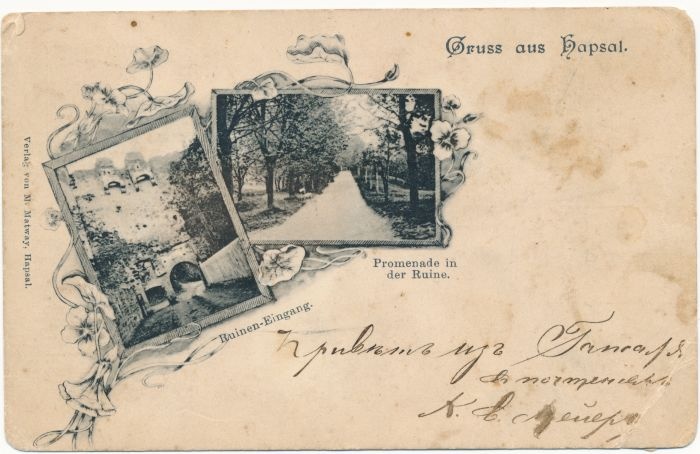 Gruss aus Hapsal.
Verlag von M. Matway, Hapsal.
Promenade in
der Ruine.
Ruinen-Eingang.
Приветъ изъ Гапсаля
А. В. Мейеръ